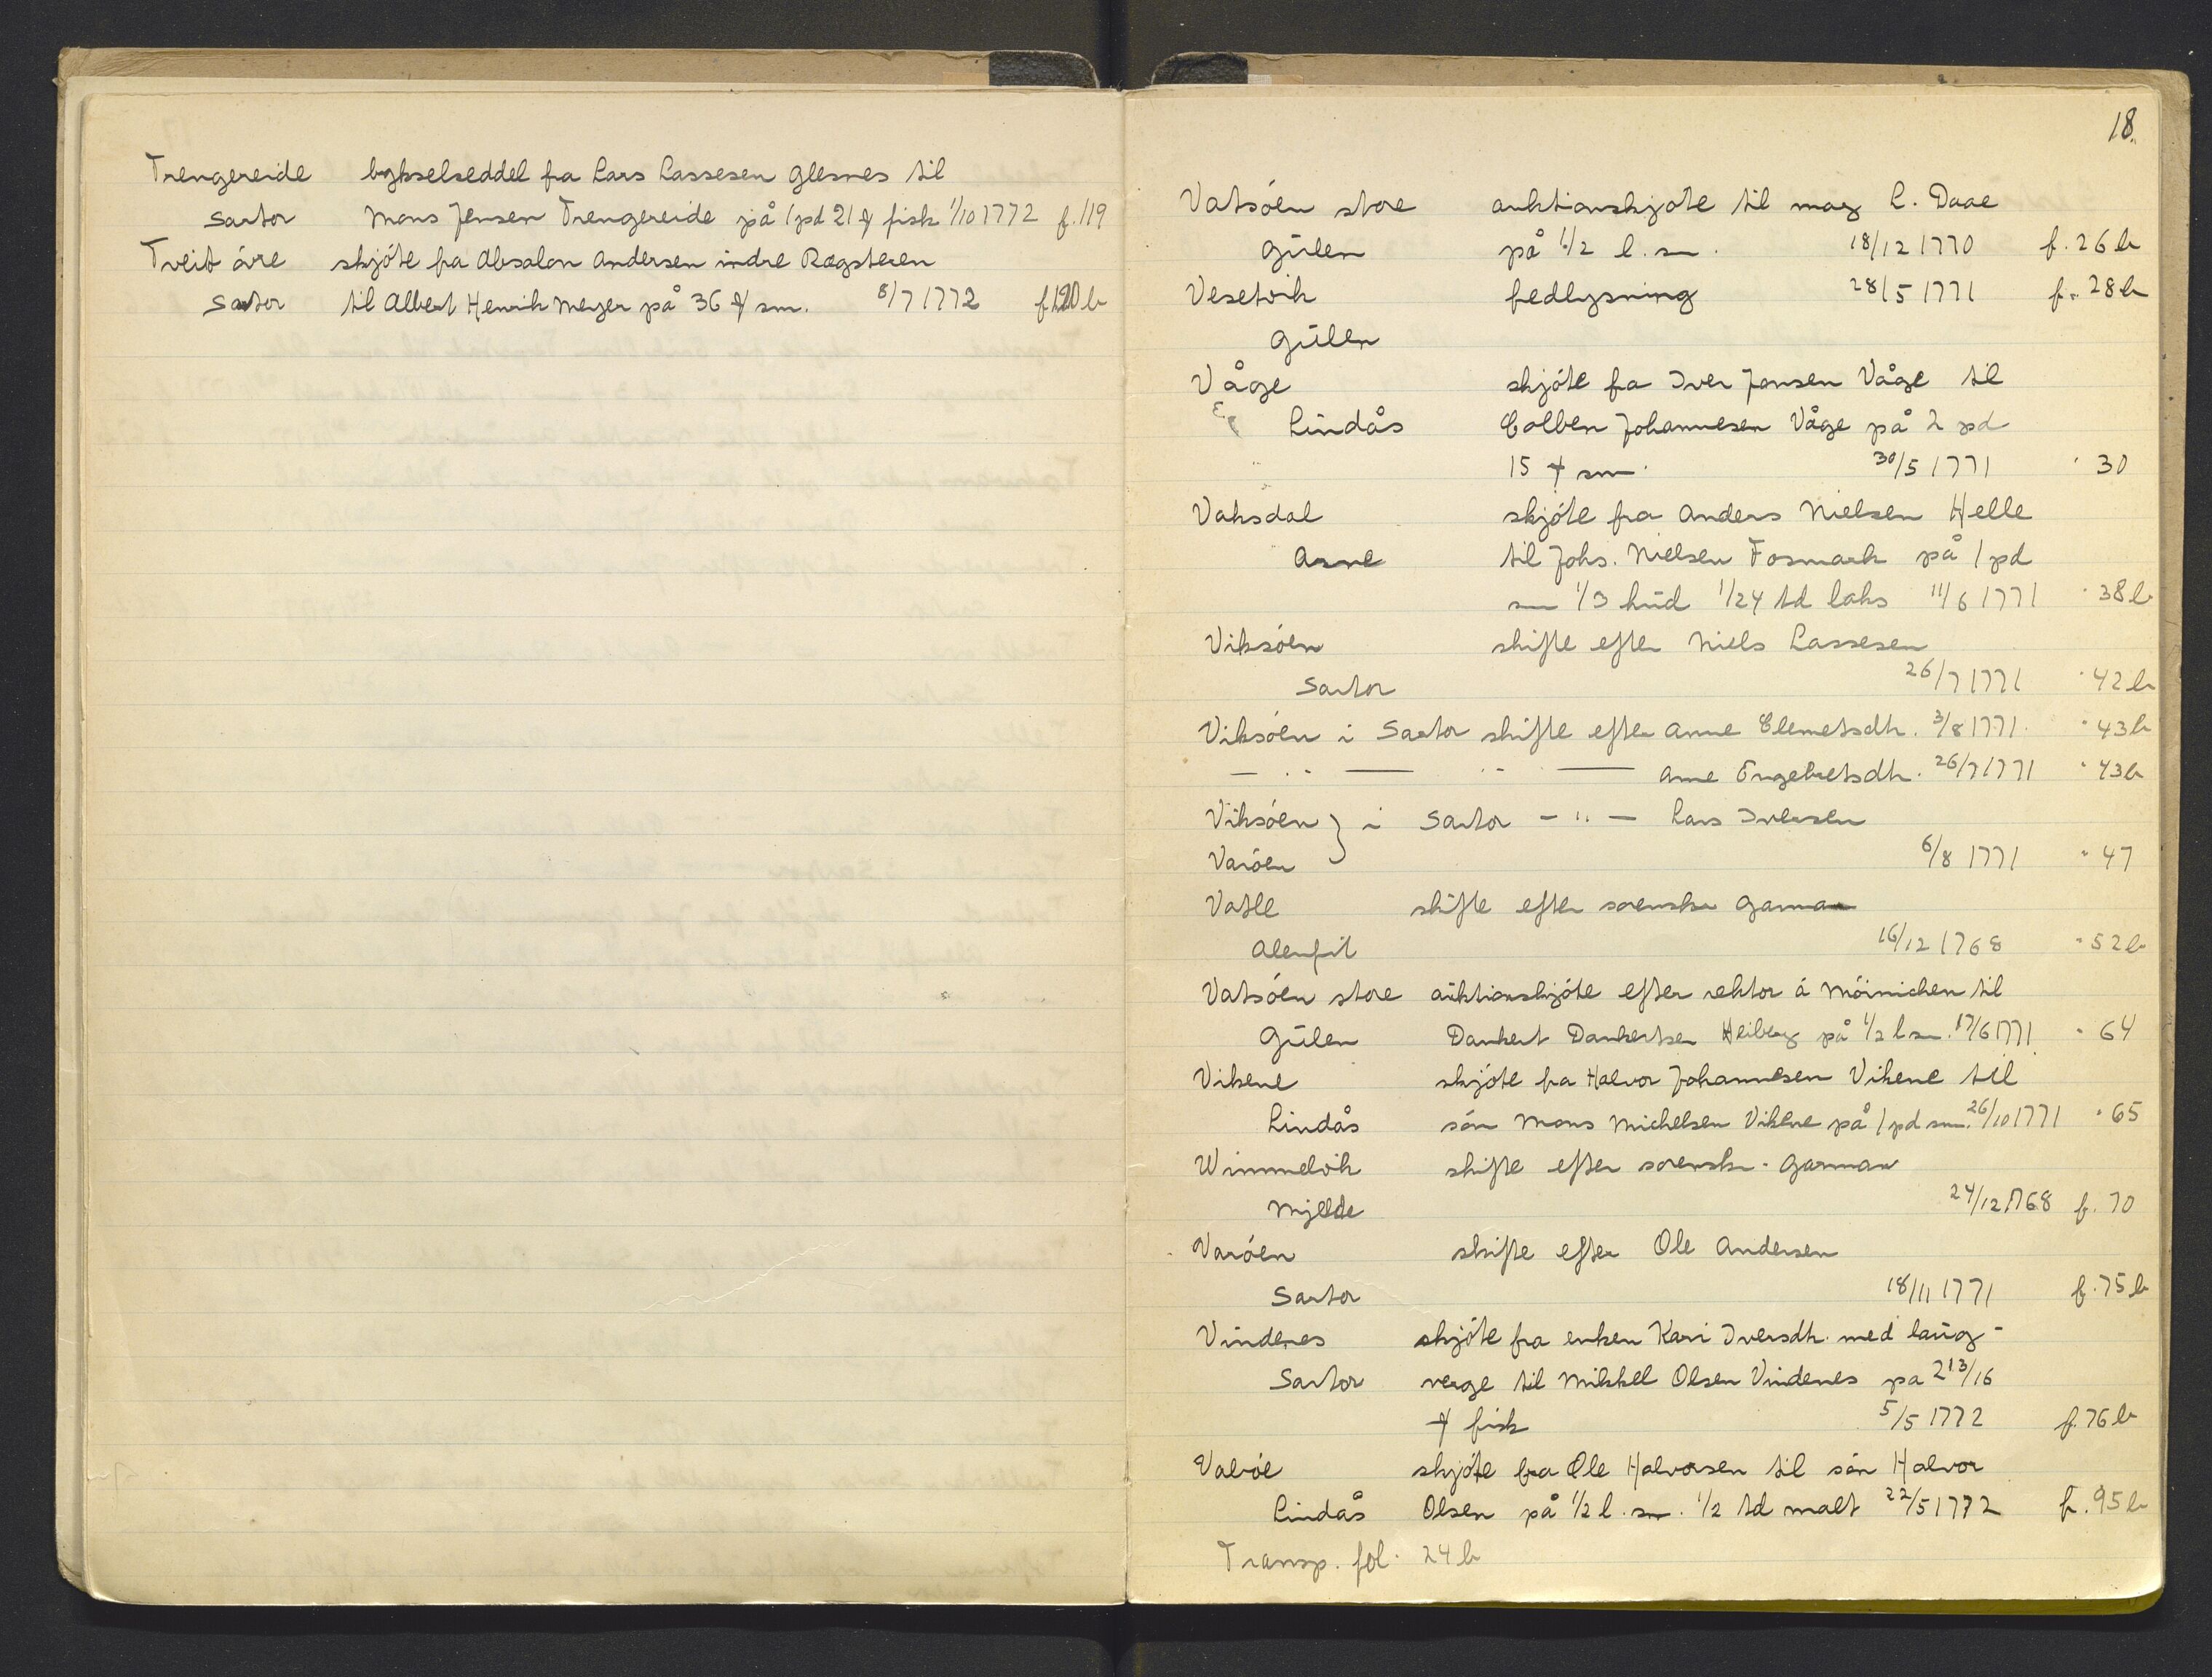 Trengereide bykselseddel fra Lars Lassesen Glesnes til
Sartor Mons Jensen Trengereide på 1 pd 21 ℔ fisk 1/10 1772 f. 119
Tveit óvre skjóte fra Absalon Andersen indre Rægsteren
Sartor til Albert Henrik Meyer på 36 ℔ sm. 8/7 1772 f 120 b
18.
Vatsóen store auktionskjote til mag L. Daae
Gŭlen på 1/2 l. sm. 18/12 1770 f. 26 b
Vesetvik fedlysning 28/5 1771 f. 28 b
Gŭlen
Våge skjóte fra Iver Jansen Våge til
Lindås Colben Johannesen Våge på 2 pd
15 ℔ sm. 30/5 1771 " 30
Vaksdal skjóte fra Anders Nielsen Helle
Arne til Johs. Nielsen Fosmark på 1 pd
sm 1/3 hŭd 1/24 td laks 11/6 1771 " 38 b
Viksóen skifte efter Niels Lassesen
Sartor 26/7 1771 " 42 b
Viksóen i Sartor skifte efter Anne Clemetsdtr. 3/8 1771. " 43 b
— " — " — Anne Engebretsdtr. 26/7 1771 " 43 b
Viksóen } i Sartor — " — Lars Iversen
Varóen 6/8 1771 " 47
Vatle skifte efter sorenskr Garman
Alenfit 16/12 1768 " 52 b
Vatsóen store aŭktionskjóte efter rektor á Móinichen til
Gŭlen Dankert Dankertsen Heiberg på 1/2 l sm. 17/6 1771 " 64
Vikene skjóte fra Halvor Johannesen Vikene til
Lindås són Mons Michelsen Vikene på 1 pd sm. 26/10 1771 " 65
Wimmelvik skifte efter sorenskr. Garman
Mjelde 24/12 1768 f. 70
Varóen skifte efter Ole Andersen
Sartor 18/11 1771 f. 75 b
Vindenes skjóte fra enken Kari Iversdtr. med laŭg-
Sartor verge til Mikkel Olsen Vindenes pa 2 13/16
℔ fisk 5/5 1772 f. 76 b
Valvóe skjóte fra Ole Halvorsen til són Halvor
Lindås Olsen på 1/2 l. sm. 1/2 td malt 22/5 1772 f. 95 b
Transp. fol. 24 b